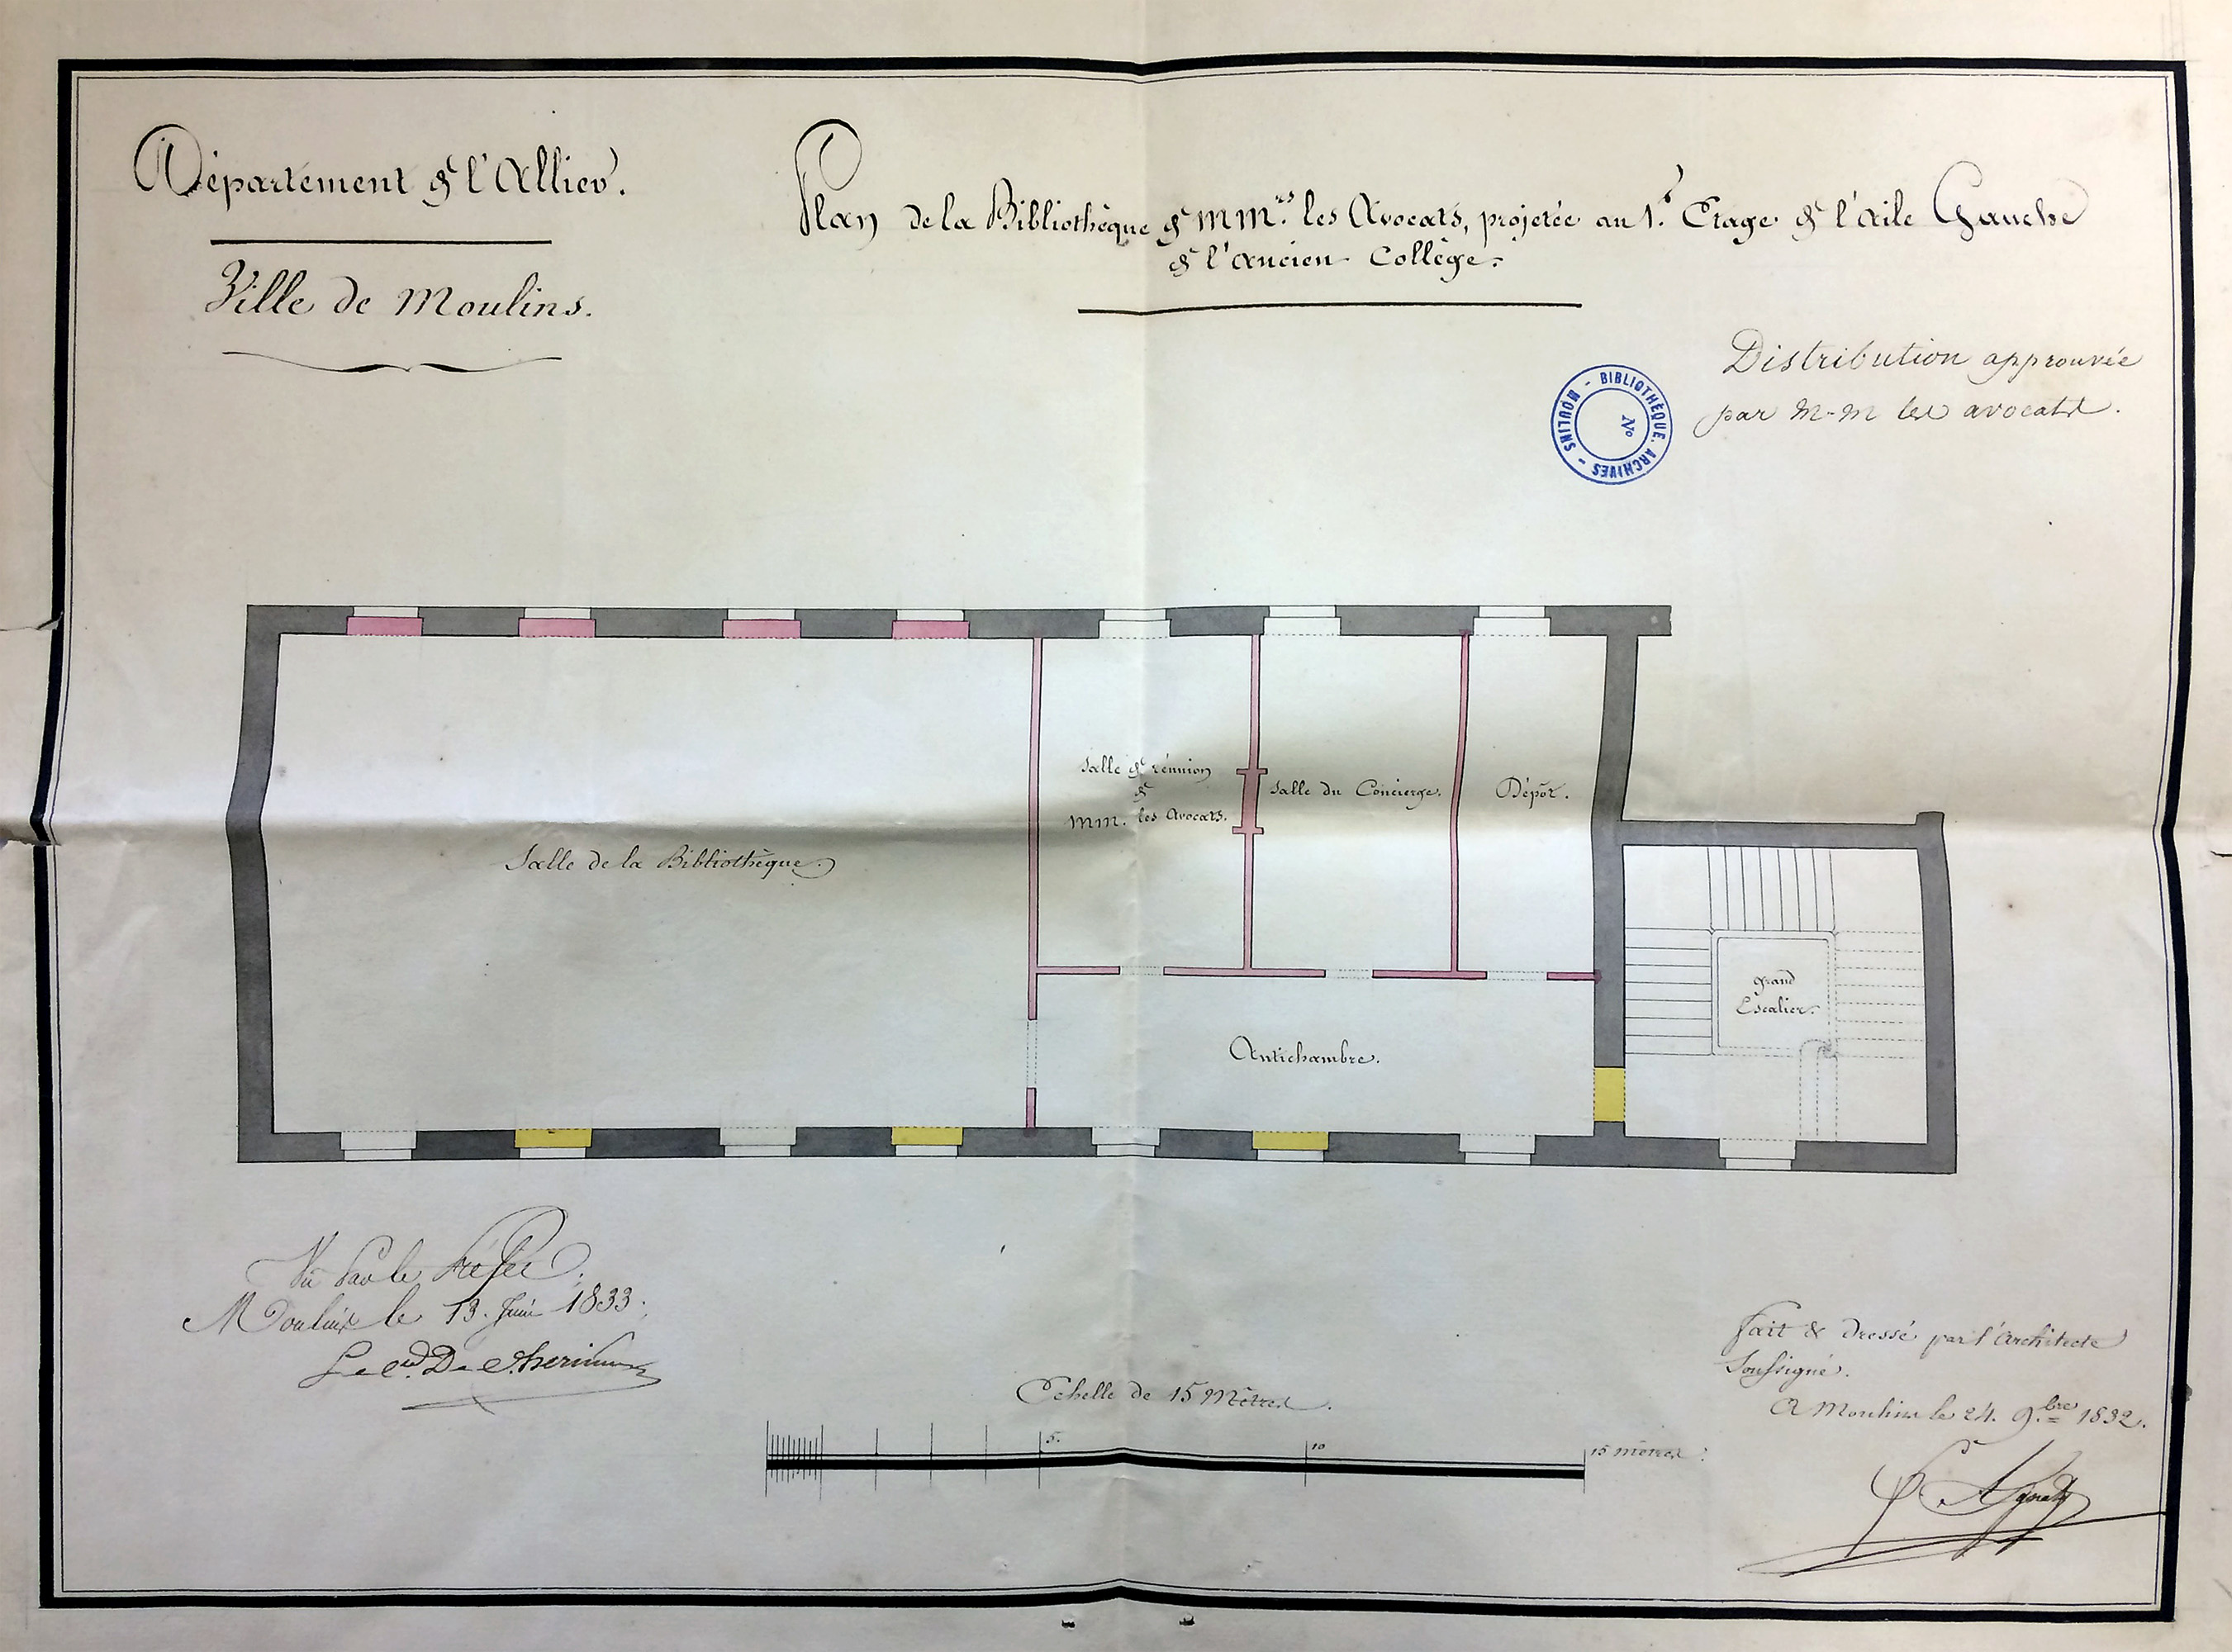 Département de l'Allier.
Ville de Moulins.
Plan de la Bibliothèque de MM.rs les Avocats, projetée au 1.er Etage de l'aile Gauche
de l'ancien Collège.
Distribution approuvée
par M-M les avocats.
BIBLIOTHÈQUE. ARCHIVES - MOULINS -
No
Salle de réunion
de
MM. les Avocats.
Salle du Concierge.
Dépôt.
Salle de la Bibliothèque.
grand
Escalier.
Antichambre.
Vu Par le Préfet.
Moulins le 13. Juin 1833.
Fait & dressé par l'Architecte
Soussigné.
A Moulins le 24. 9.bre 1832.
Echelle de 15 Mètres.
5.
10
15 mètres.